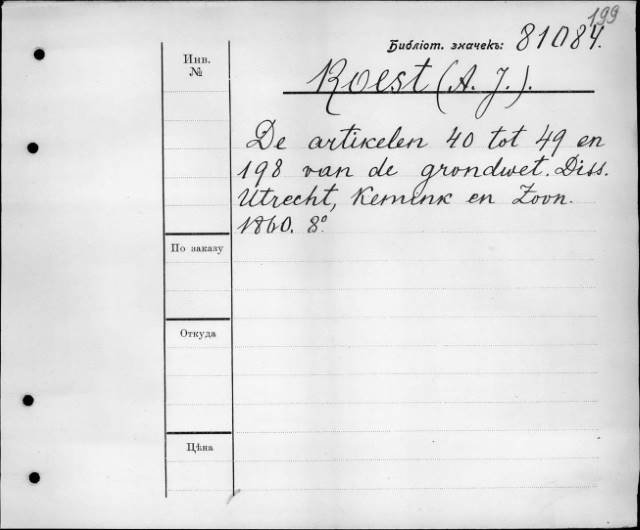 199
Библіот. значекъ: 81084.
Инв.
№
Roest (A. J.).
De artikelen 40 tot 49 en
198 van de grondwet. Diss.
Utrecht, Kemink en Zoon.
1860. 8°
По заказу
Откуда
Цѣна